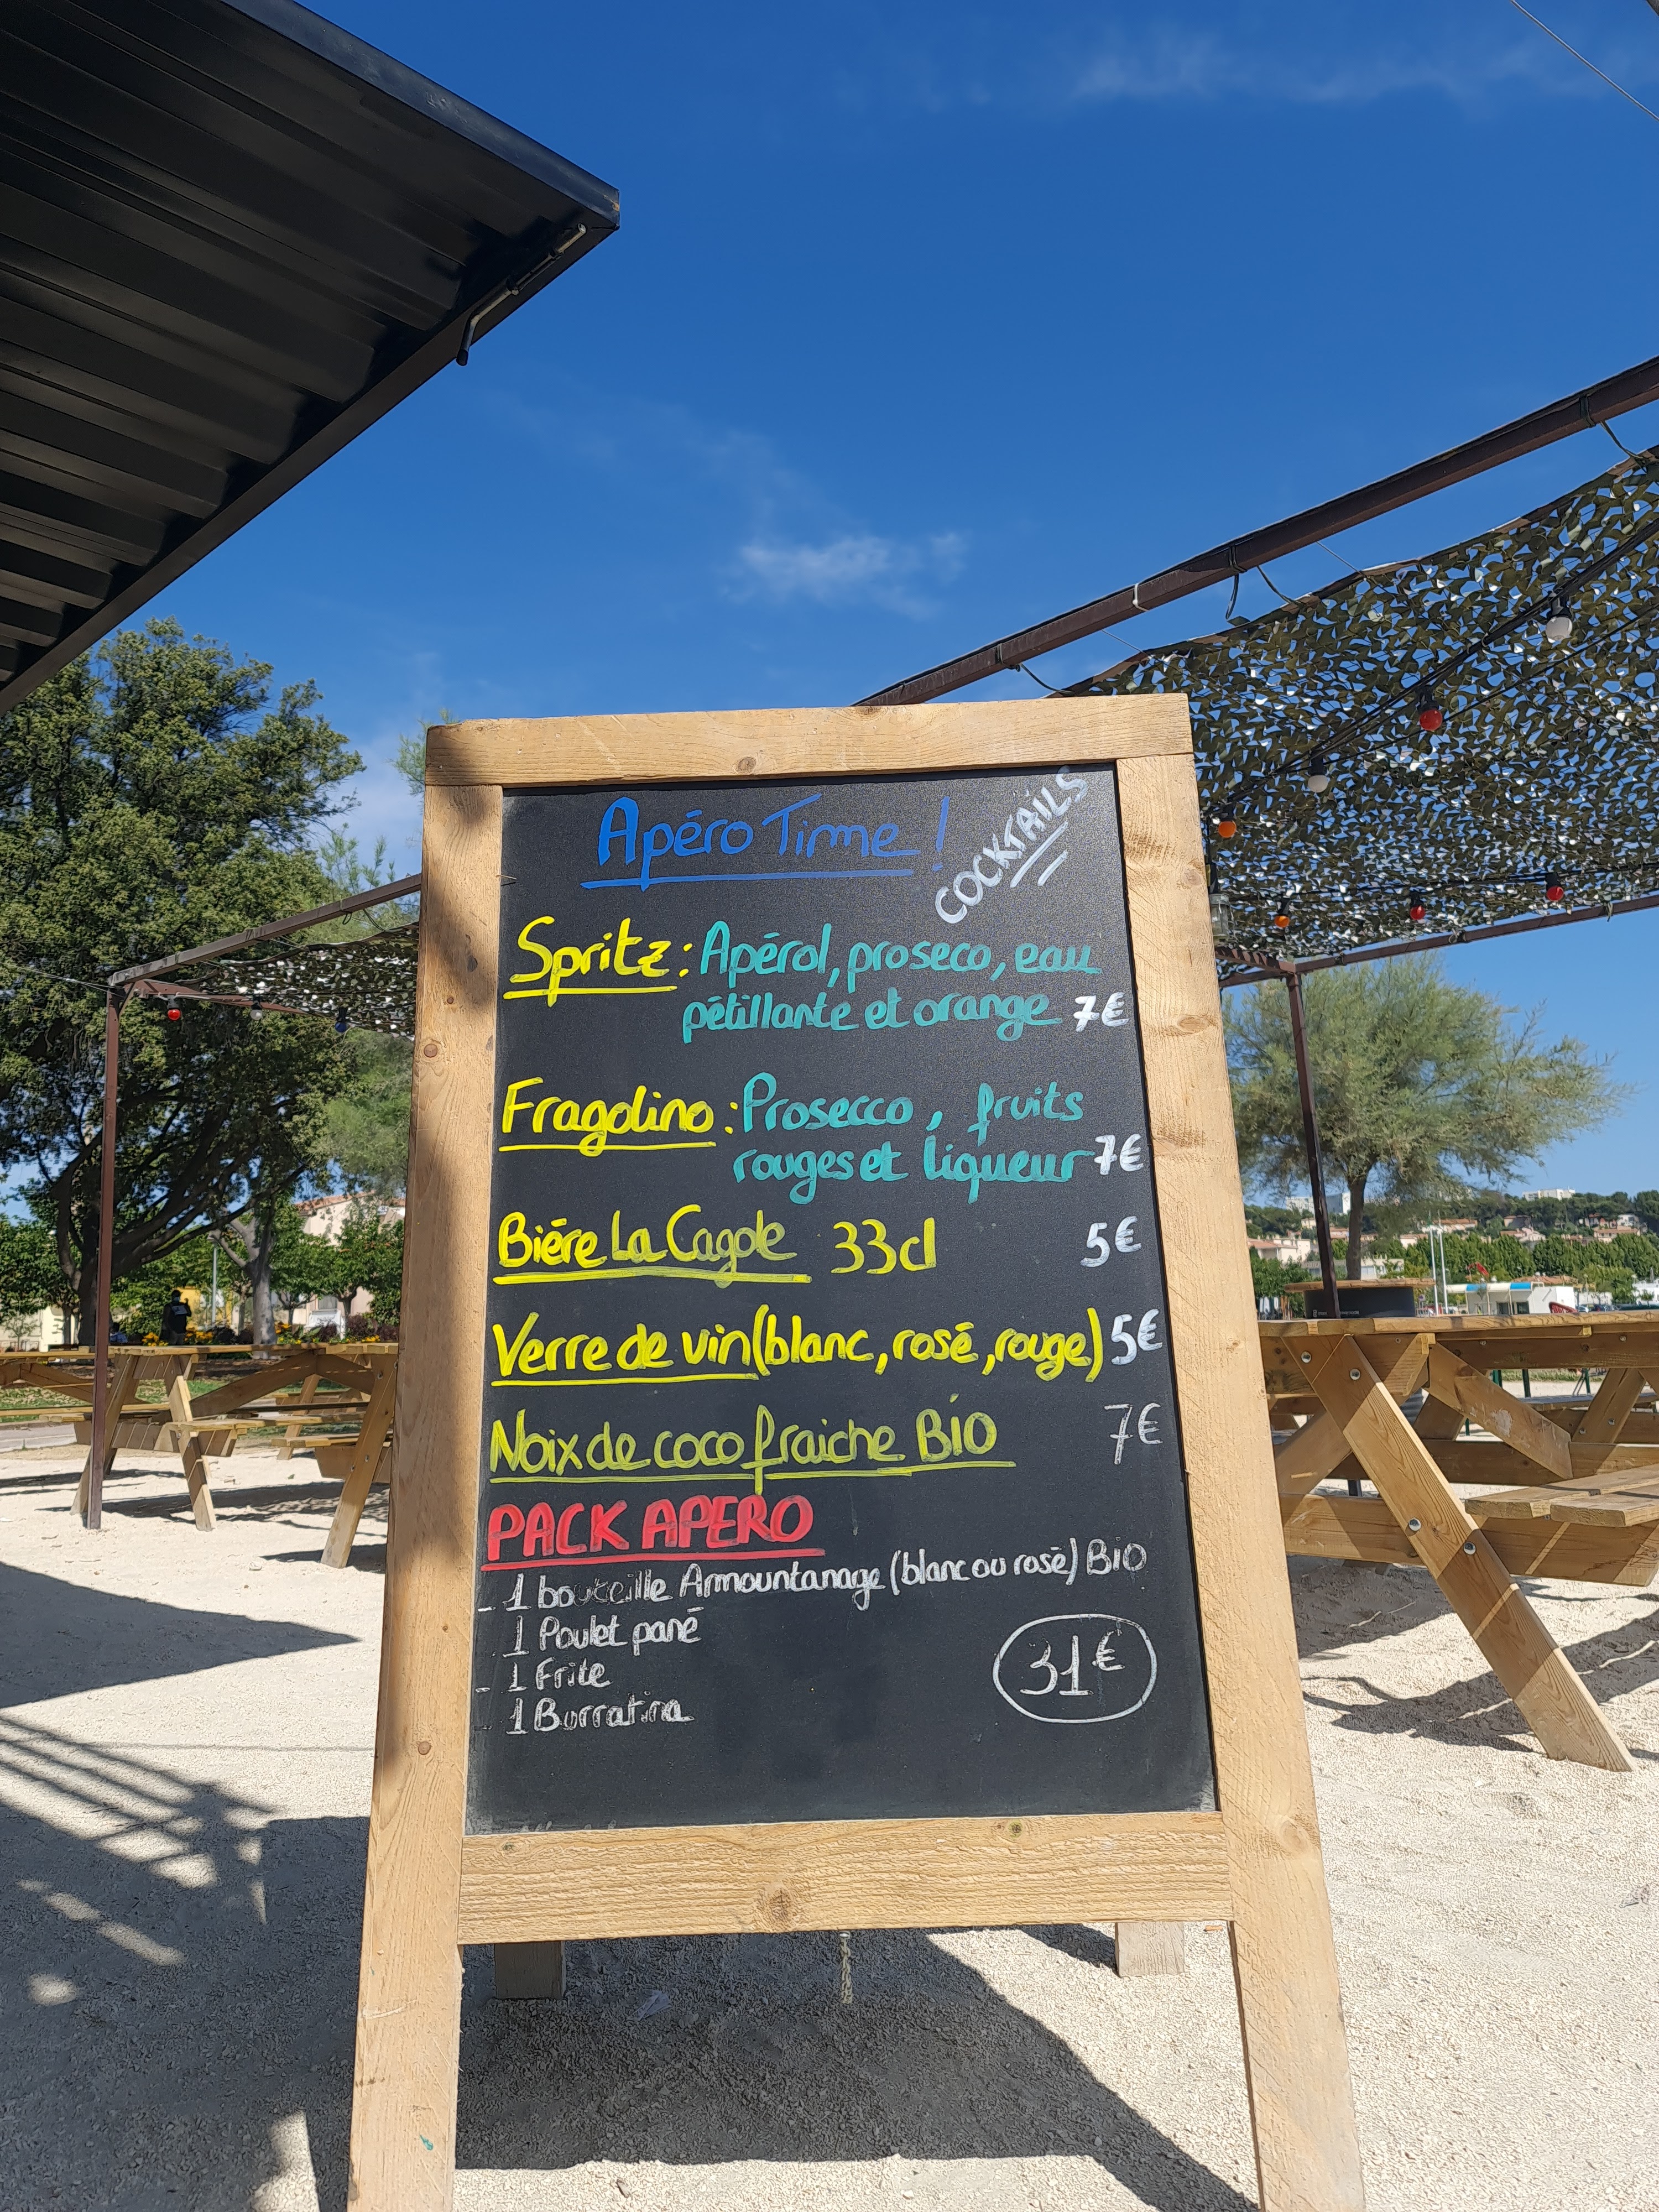 Apéro Time !
COCKTAILS
Spritz : Apérol, proseco, eau
pétillante et orange 7€
Fragolino : Prosecco, fruits
rouges et liqueur 7€
Bière La Cagole 33cl 5€
Verre de vin (blanc, rosé, rouge) 5€
Noix de coco fraiche BIO 7€
PACK APERO
- 1 bouteille Amountanage (blanc ou rosé) BIO
- 1 Poulet pané
- 1 Frite
- 1 Burratina
31€